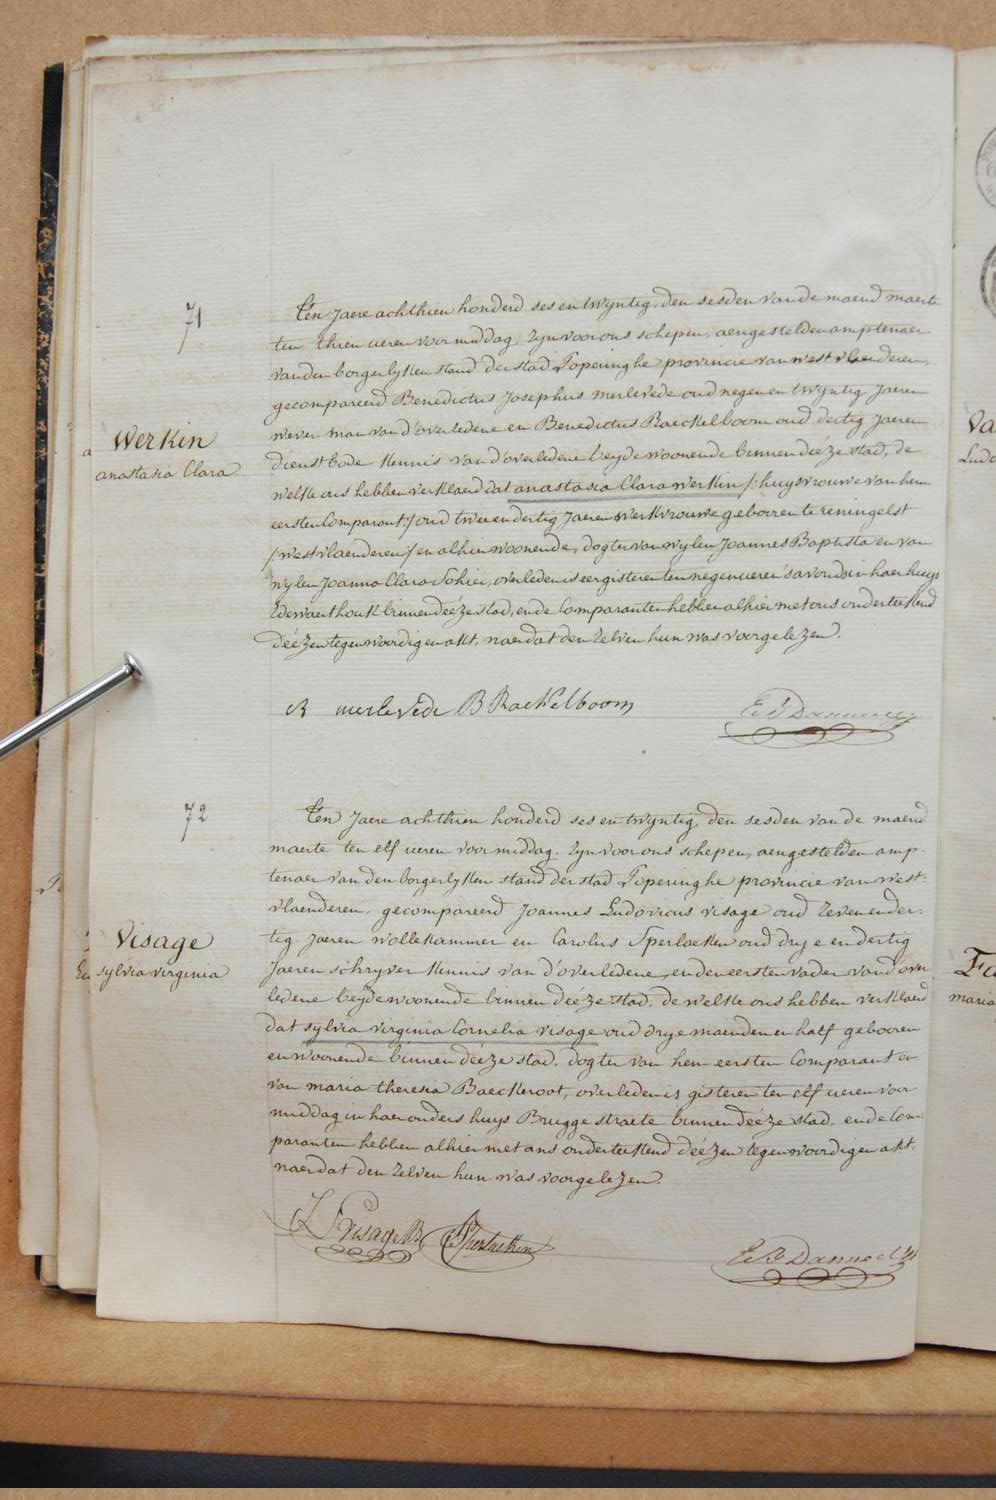 71
Werkin
anastasia Clara
Ten Jaere achthien honderd ses en twyntig, den sesden van de maend maerte
ten thien ueren voormiddag, zyn voor ons schepen, aengestelden amptenaer
van den borgerlyken stand der stad Poperinghe provincie van west vlaenderen,
gecompareerd Benedictus Josephus merlevede oud negen en twyntig Jaeren
wever man van d'overledene en Benedictus Raeckelboom oud dertig Jaeren
dienstbode kennis van d'overledene beyde woonende binnen deéze stad, de
welke ons hebben verklaerd dat anastasia Clara werkin /: huysvrouwe van hem
eersten Comparant:/ oud twee en dertig Jaeren werkvrouwe gebooren te reningelst
/westvlaenderen/ en alhier woonende, dogter van wylen Joannes Baptista en van
wylen Joanna Clara Sohier, overleden is eergisteren ten negen ueren 's avonds in haer huys
Edewaerthoek binnen deéze stad, en de Comparanten hebben alhier met ons onderteekend
deézen tegenwoordigen akt, naer dat den zelven hun was voorgelezen.
B merlevede B Raekelboom
72
Visage
sylvia virginia
Ten Jaere achthien honderd ses en twyntig, den sesden van de maend
maerte ten elf ueren voormiddag, zyn voor ons schepen, aengestelden amp-
tenaer van den borgerlyken stand der stad Poperinghe provincie van west-
vlaenderen, gecompareerd Joannes Ludovicus visage oud zeven en der-
tig Jaeren wollekammer en Carolus Sperlaeken oud drye en dertig
Jaeren schryver kennis van d'overledene, en den eersten vader van d'over
ledene beyde woonende binnen deéze stad, de welke ons hebben verklaerd
dat sylvia virginia Cornelia visage oud drye maenden en half gebooren
en woonende binnen deéze stad, dogter van hem eersten Comparant en
van maria theresia Baeckeroot, overleden is gisteren ten elf ueren voor
middag in haer ouders huys Brugge straete binnen deéze stad, en de Com
paranten hebben alhier met ons onderteekend deézen tegenwoordigen akt,
naer dat den zelven hun was voorgelezen.
L Visage